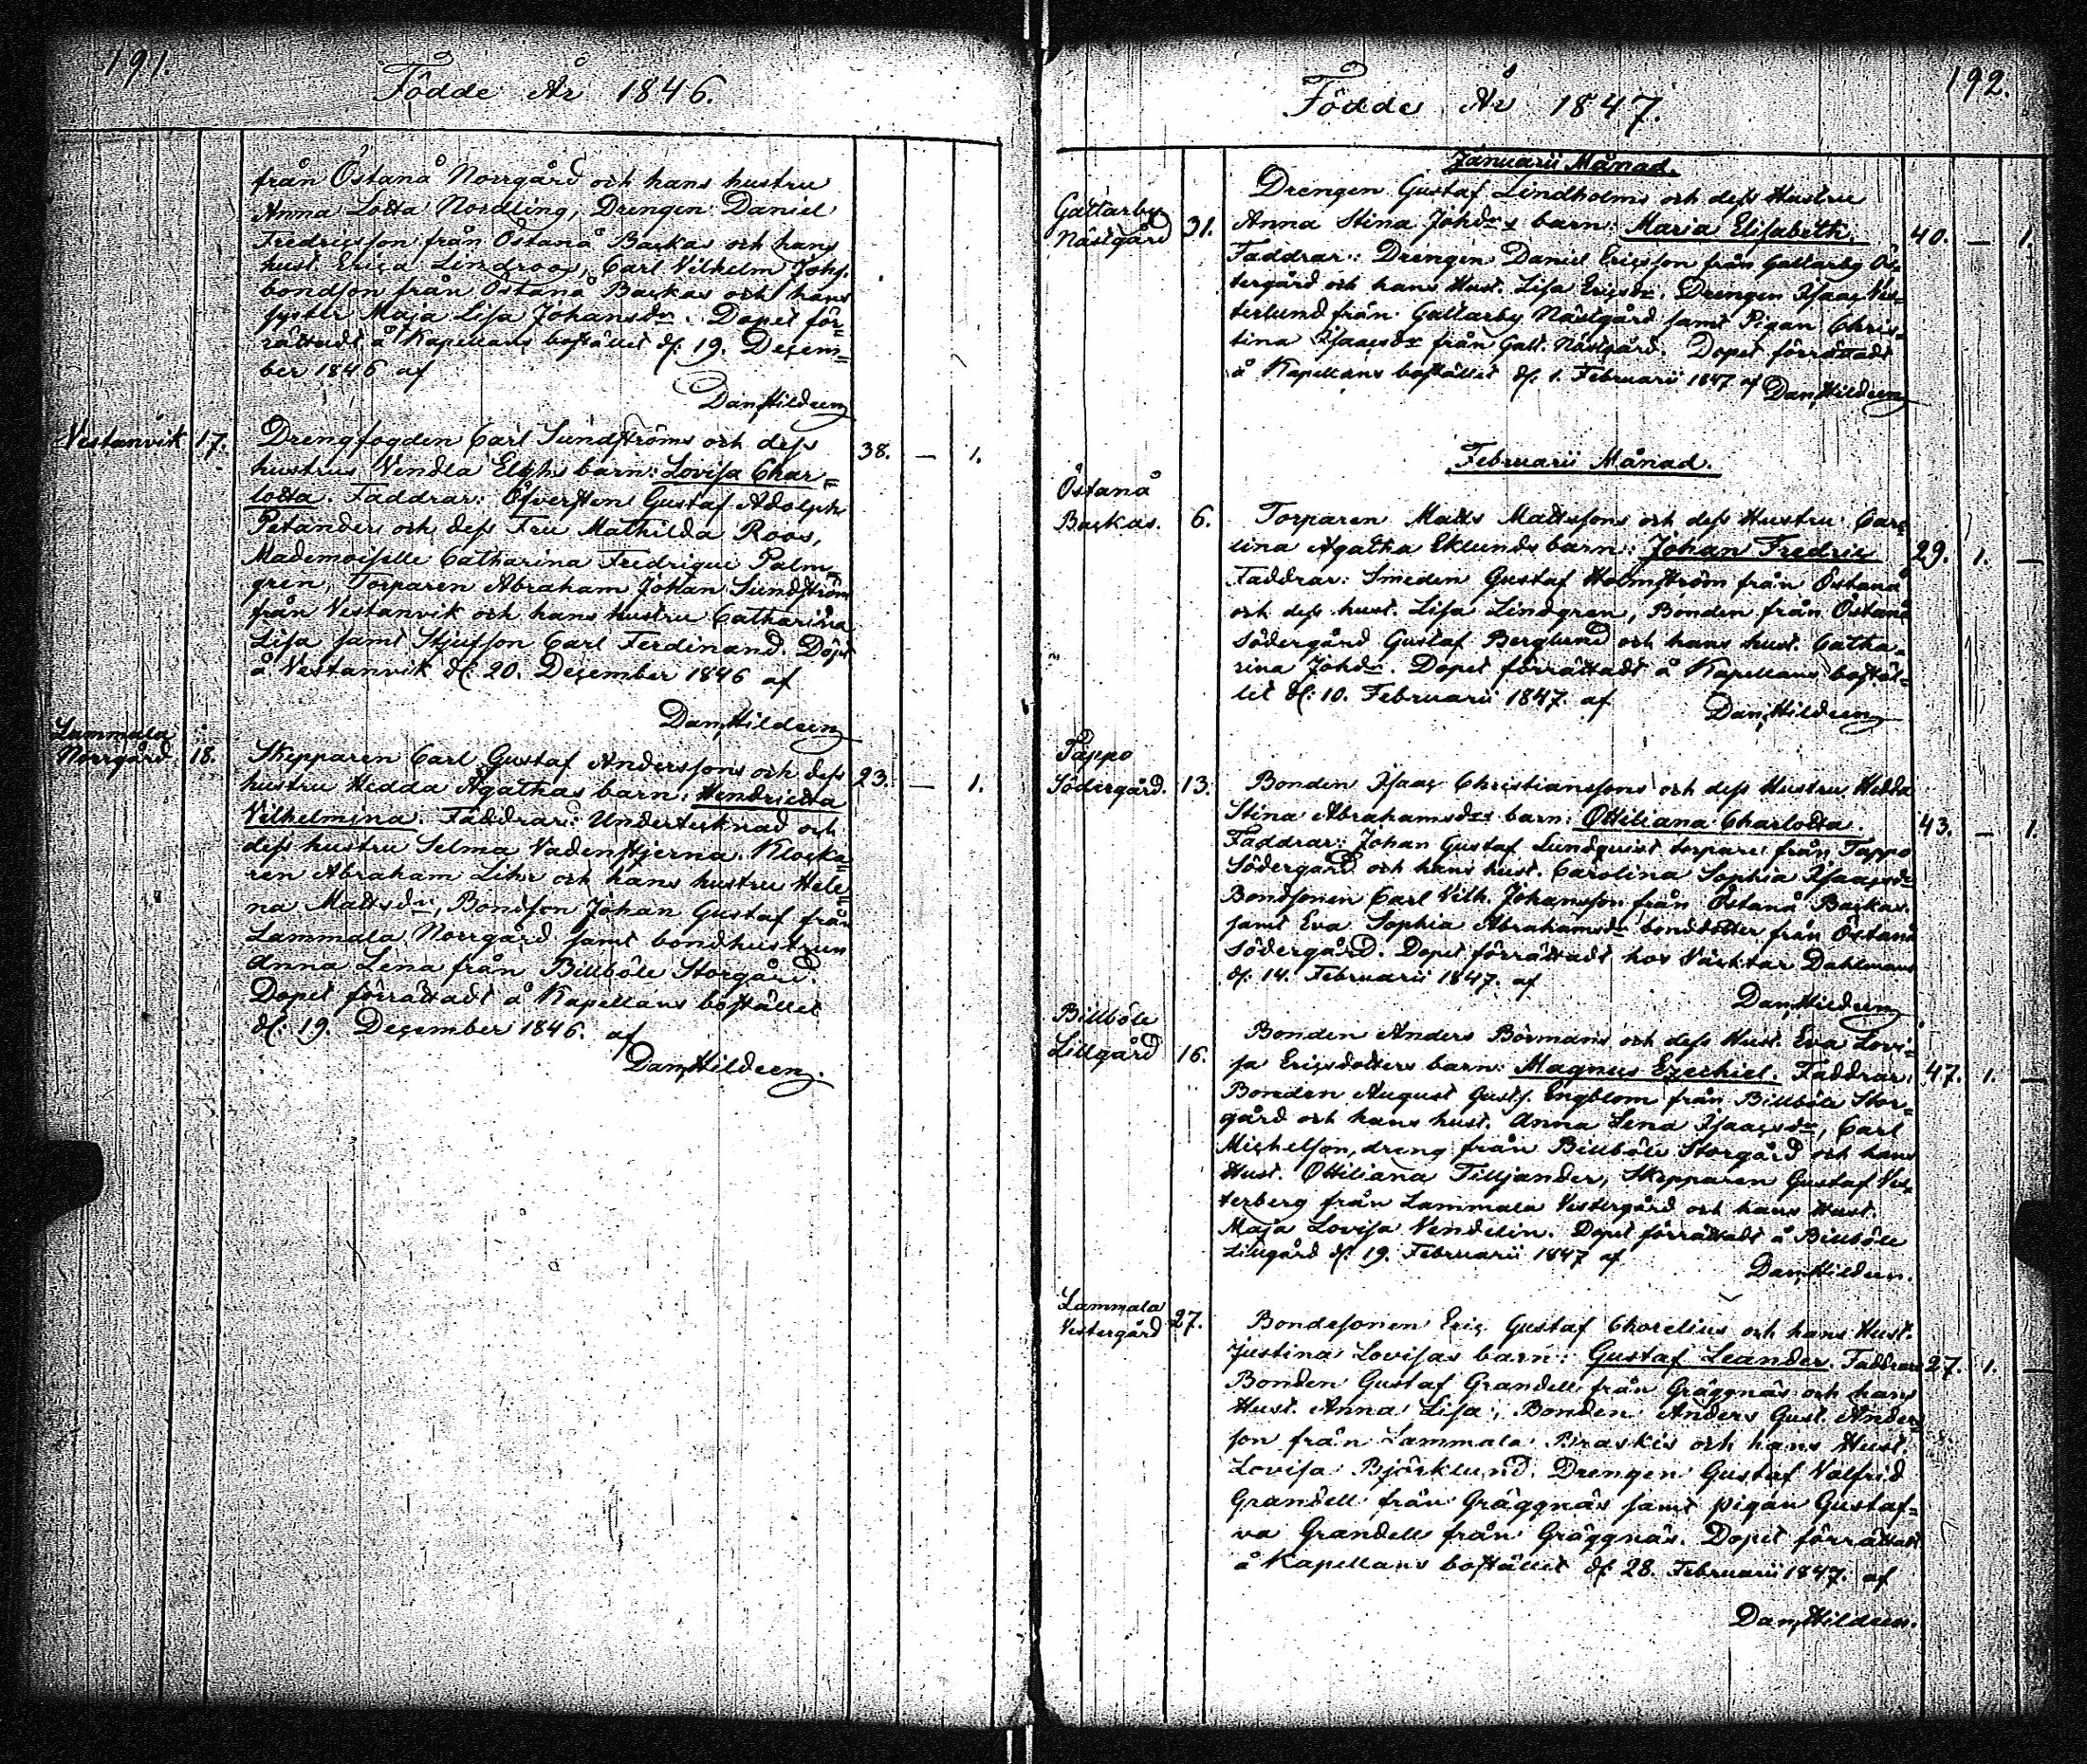 191.
Födde År 1846.
från Östanå Norrgård och hans hustru
Anna Lotta Nordling, Drengen Daniel
Fredricsson från Östanå Backas och hans
hust. Erica Lindroos, Carl Vilhelm Johs.
bondson från Östanå Backas och hans
syster Maja Lisa Johansdr. Dopet för=
rättadt å Kapellans bostället d: 19. Decem=
ber 1846 af
Dan, Hildeen
Vestanvik 17. Drengfogden Carl Sundströms och dess 38. — 1.
hustrus Vendla Elghs barn: Lovisa Char=
lotta. Faddrar: Öfversten Gustaf Adolph
Petanders och dess Fru Mathilda Roos,
Mademoiselle Catharina Fredrique Palm=
gren, Torparen Abraham Johan Sundström
från Vestanvik och hans hustru Catharina
Lisa samt Stjufson Carl Ferdinand. Döpt
å Vestanvik d: 20. December 1846 af
Dan, Hildeen
Lammala
Norrgård 18. Skepparen Carl Gustaf Anderssons och dess 23. — 1.
hustru Hedda Agathas barn: Hendrietta
Vilhelmina. Faddrar: Undertecknad och
dess hustru Selma Vadenstjerna. Klocka=
ren Abraham Lihr och hans hustru Hele=
na Mattsdr, Bondson Johan Gustaf från
Lammala Norrgård samt bondhustrun
Anna Lena från Billböle Storgård.
Dopet förrättadt å Kapellans bostället
d: 19. December 1846. af
Dan, Hildeen.
192.
Födde År 1847.
Januarii Månad.
Gattarby
Nästgård 31. Drengen Gustaf Lindholms och dess Hustru
Anna Stina Johdrs barn: Maria Elisabeth. 40. — 1.
Faddrar: Drengen Daniel Ericsson från Gattarby Ös=
tergård och hans Hust. Lisa Ericsdr. Drengen Isaac Ves=
terlund från Gattarby Nästgård samt Pigan Chris=
tina Isaacsdr från Gatt. Nästgård. Dopet förrättadt
å Kapellans bostället d: 1. Februarii 1847 af Dan, Hildeen
Februarii Månad.
Östanå
Backas. 6. Torparen Matts Mattssons och dess Hustru Caro=
lina Agatha Eklunds barn: Johan Fredric 29. 1. —
Faddrar: Smeden Gustaf Holmström från Östanå
och dess hust. Lisa Lindgren, Bonden från Östanå
Södergård Gustaf Berglund och hans hust. Catha=
rina Johdr. Dopet förrättadt å Kapellans bostäl=
let d: 10. Februarii 1847. af Dan, Hildeen
Tappo
Södergård. 13. Bonden Isaac Christianssons och dess Hustru Hedda
Stina Abrahamsdrs barn: Ottiliana Charlotta. 43. — 1.
Faddrar: Johan Gustaf Lundquist torpare från Tappo
Södergård och hans hust. Carolina Sophia Isaacsdr
Bondsonen Carl Vilh. Johansson från Östanå Backas.
samt Eva Sophia Abrahamsdr bonddotter från Östanå
Södergård. Dopet förrättadt hos Vächtar Dahlmans
d: 14. Februarii 1847. af
Dan, Hildeen
Billböle
Lillgård 16. Bonden Anders Börmans och dess Hust. Eva Lovi=
sa Ericsdotters barn: Magnus Ezechiel. Faddrar: 47. 1. —
Bonden August Gusts. Engblom från Billböle Stor=
gård och hans hust. Anna Lena Isaacsdr, Carl
Michelson, dreng från Billböle Storgård och hans
Hust. Ottiliana Tilljander, Skepparen Gustaf Ves=
terberg från Lammala Vestergård och hans Hust.
Maja Lovisa Vendelin. Dopet förrättadt å Billböle
Lillgård d: 19. Februarii 1847 af
Dan, Hildeen.
Lammala
Vestergård 27. Bondesonen Eric Gustaf Chorelius och hans Hust.
Justina Lovisas barn: Gustaf Leander. Faddrar: 27. 1. —
Bonden Gustaf Grandell från Gräggnäs och hans
Hust. Anna Lisa, Bonden Anders Gust. Anders=
son från Lammala Braskis och hans Hust.
Lovisa Björklund. Drengen Gustaf Valfrid
Grandell från Gräggnäs samt pigan Gustaf=
va Grandell från Gräggnäs. Dopet förrättadt
å Kapellans bostället d: 28. Februarii 1847. af
Dan, Hildeen.